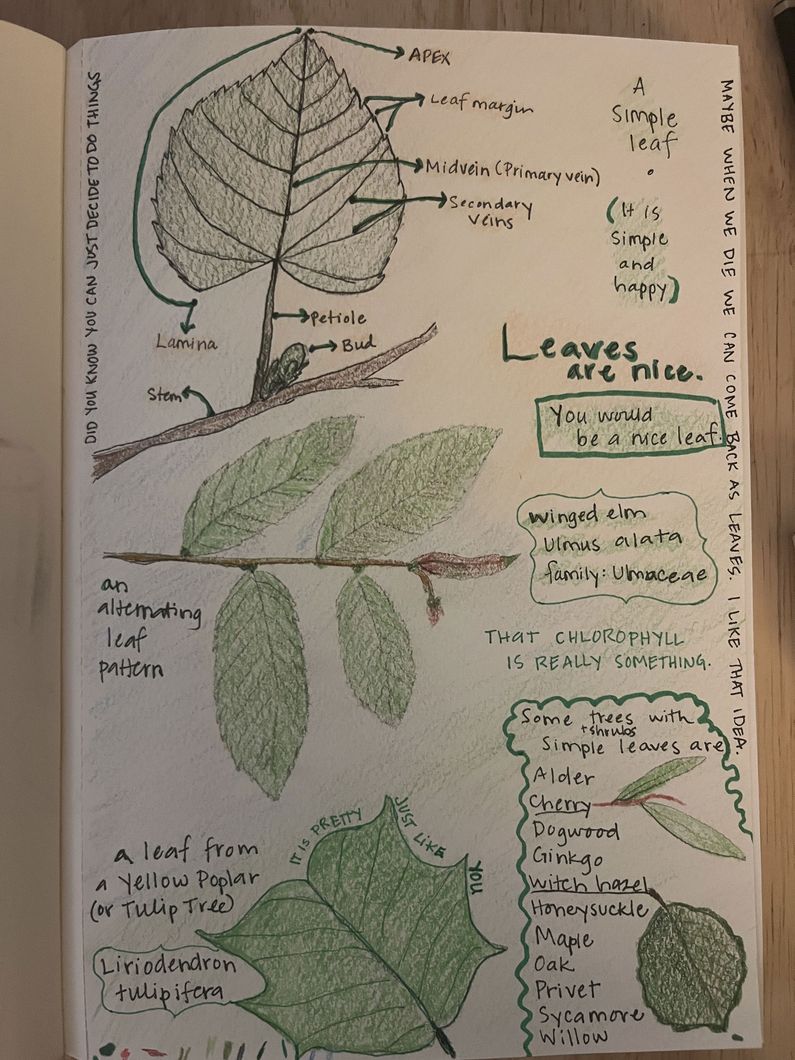 DID YOU KNOW YOU CAN JUST DECIDE TO DO THINGS
APEX
Leaf margin
Midvein (Primary vein)
Secondary
veins
Petiole
Bud
Lamina
Stem
A
Simple
leaf
(It is
simple
and
happy)
MAYBE WHEN WE DIE WE CAN COME BACK AS LEAVES. I LIKE THAT IDEA.
Leaves
are nice.
You would
be a nice leaf.
winged elm
Ulmus alata
family: Ulmaceae
an
alternating
leaf
pattern
THAT CHLOROPHYLL
IS REALLY SOMETHING.
Some trees with
+ shrubs
Simple leaves are
Alder
Cherry
Dogwood
Ginkgo
witch hazel
Honeysuckle
Maple
Oak
Privet
Sycamore
Willow
a leaf from
a Yellow Poplar
(or Tulip Tree)
Liriodendron
tulipifera
IT IS PRETTY
JUST LIKE
YOU